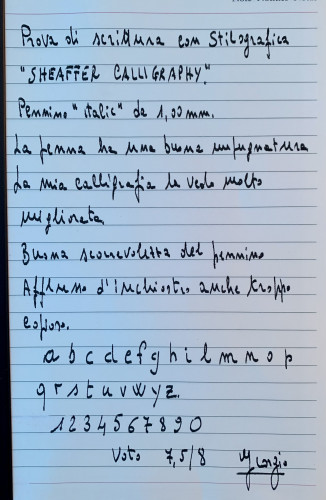 Prova di scrittura con Stilografica
"SHEAFFER CALLIGRAPHY."
Pennino "italic" da 1,00 mm.
La penna ha una buona impugnatura
La mia calligrafia la vedo molto
migliorata
Buona scorrevolezza del pennino
Afflusso d'inchiostro anche troppo
copioso.
a b c d e f g h i l m n o p
q r s t u v w y z.
1 2 3 4 5 6 7 8 9 0
Voto 7,5/8